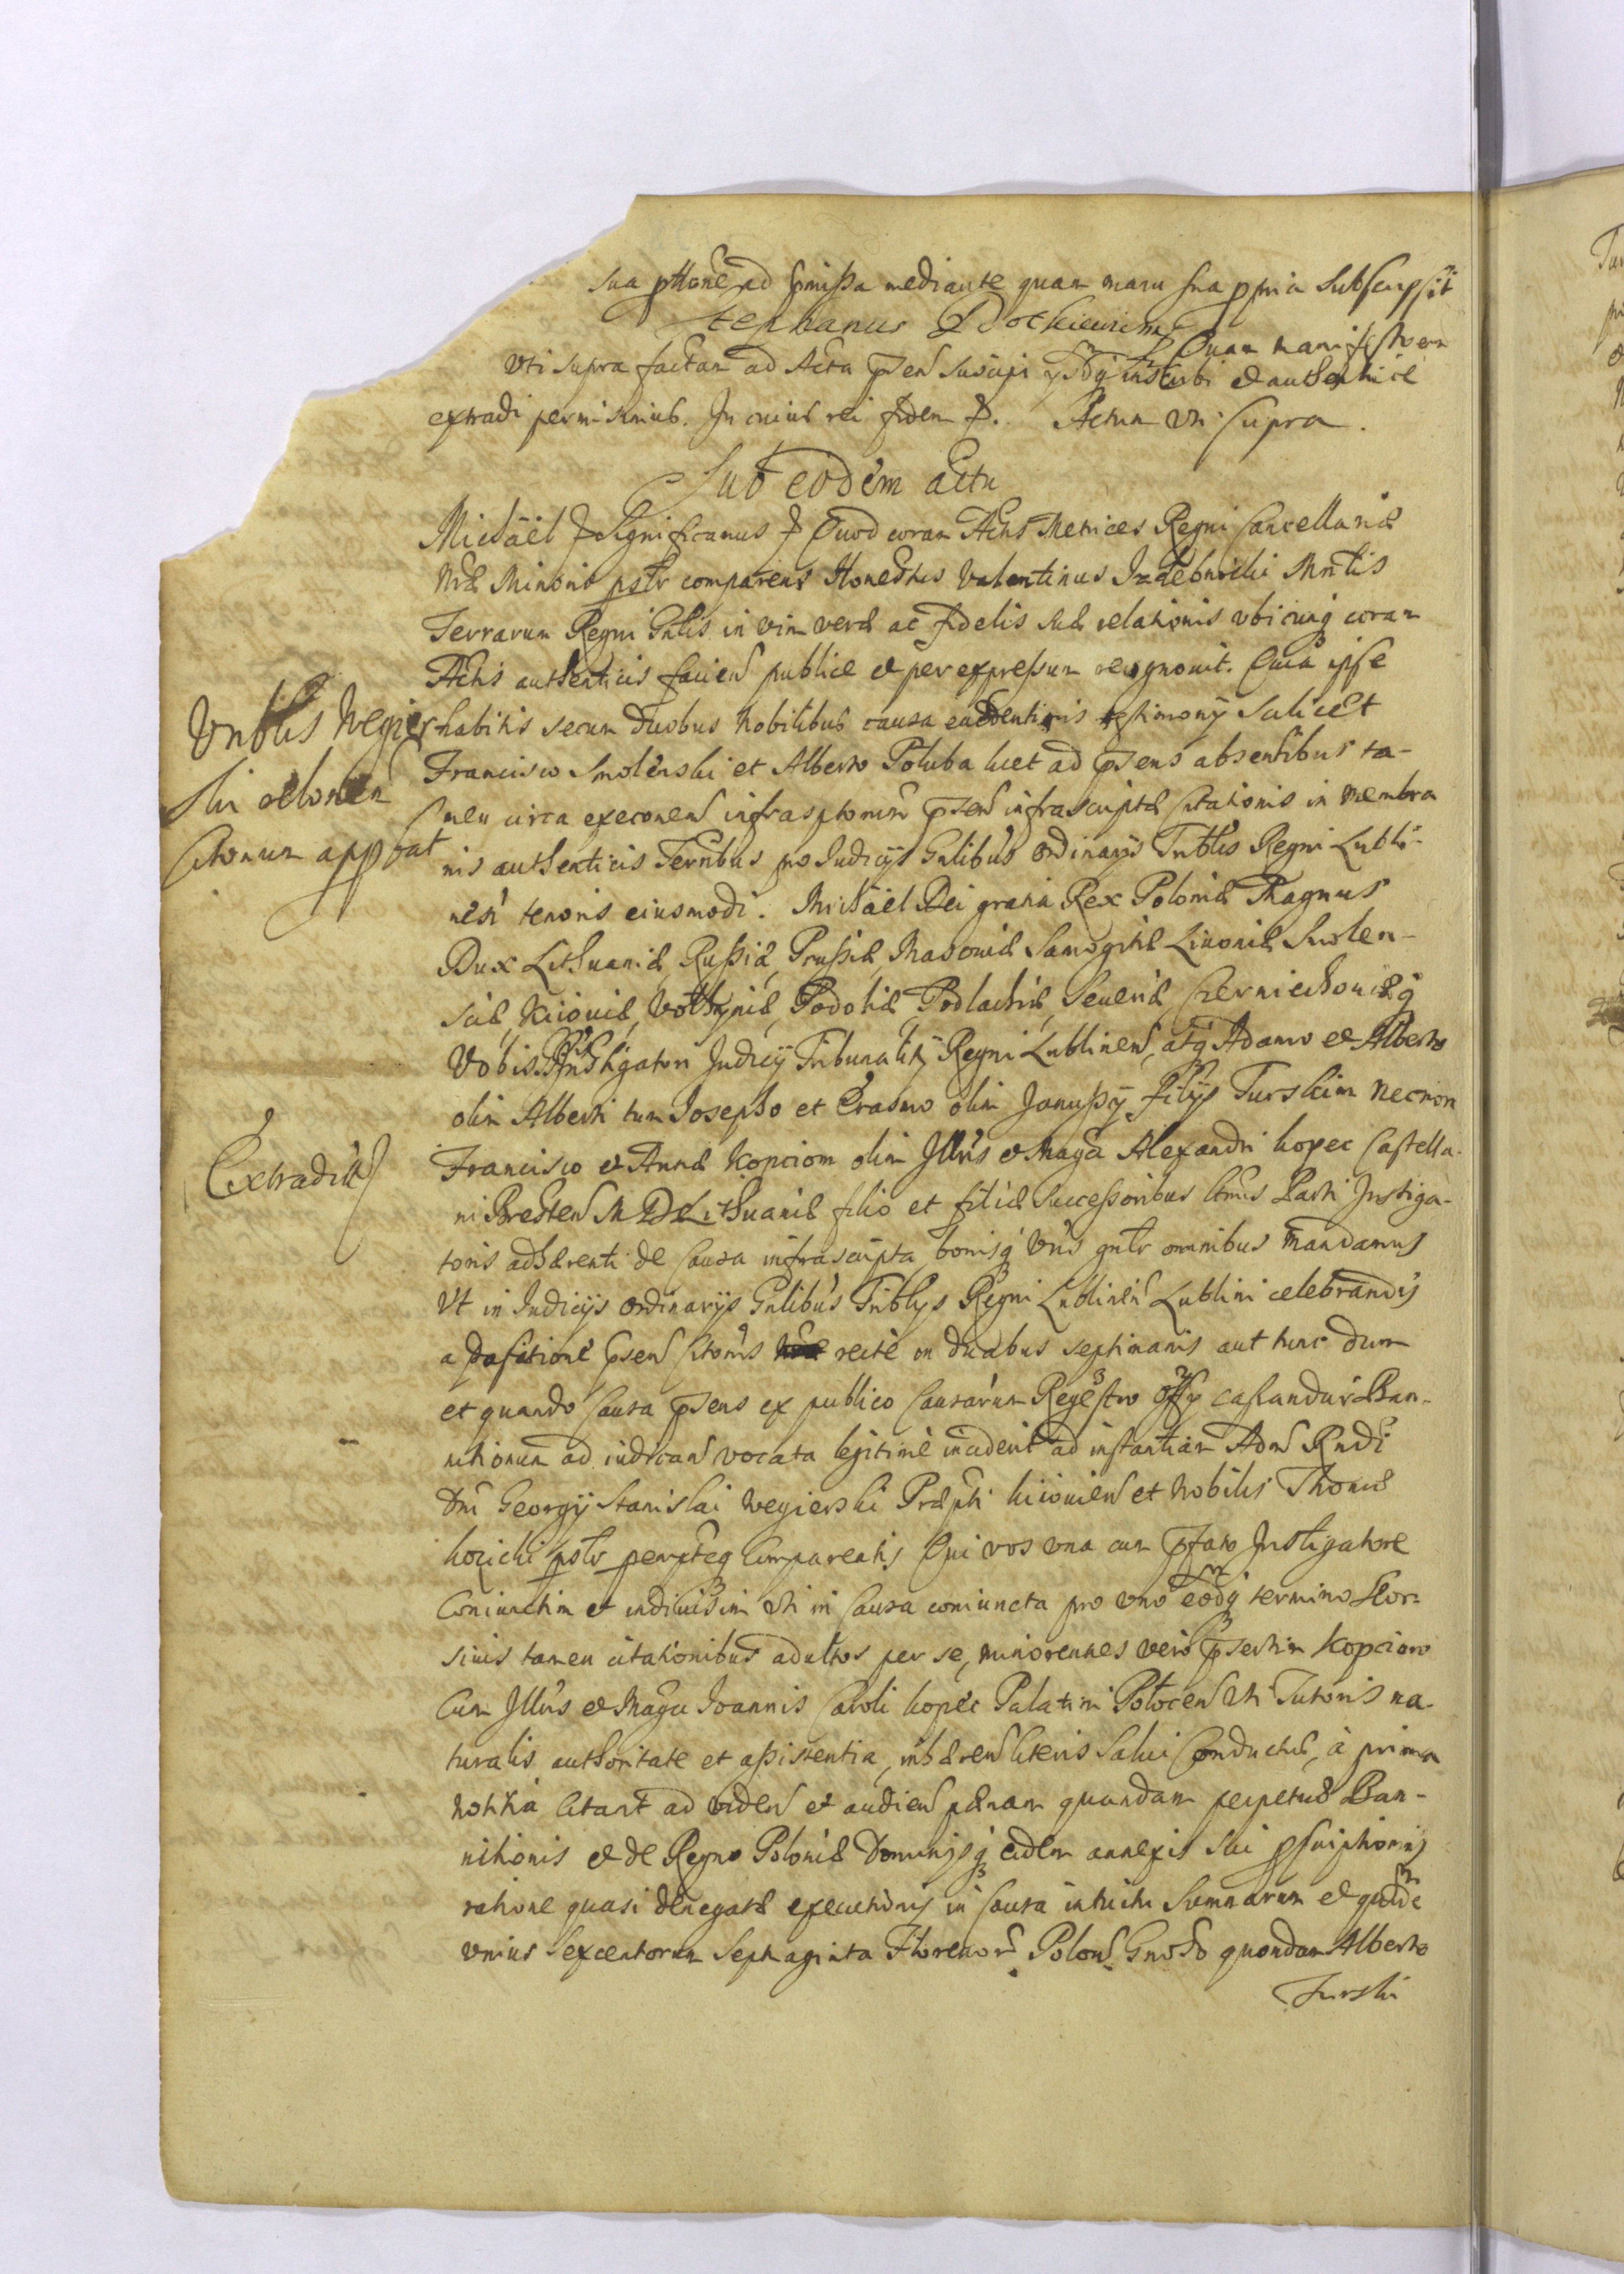 sua pttone ad pmissa mediante quam manu sua ppria subscripsit
Stephanus Quam manifestoem
Uti supra factam ad Acta psen suscipi ysdq inscribi et authentice
extradi permisimus. In cuius rei fidem &. Actum Uti supra.
Sub eodem actu
Michaël & Significamus & Quod coram Actis Metrices Regni Cancellariæ
Nræ Minoris pstr comparens Honestus Valentinus Izdebnicki Mnrlis
Terrarum Regni Gnlis in vim veræ ac fidelis suæ relationis ubicunq coram
Actis authenticis facien publice et per expressum recognovit. Quia ipse
Vnblis Wegier habitis secum duobus Nobilibus causa evidentioris testimonij scilicet
ski
Francisco Smolenski et Alberto Poluba licet ad psens absentibus ta-
men circa execonem infrasptorum psen infrascriptæ Citationis in membra
Citonum appbat
nis authenticis Ternbus pro Iudicijs Gnlibus ordinarijs Trtblis Regni Lubli-
nen tenoris eiusmodi. Michaël Dei gratia Rex Poloniæ Magnus
Dux Lithuaniæ, Russiæ, Prussiæ, Masoviæ Samogitiæ Livoniæ Smolen-
sciæ, Kiioviæ, Volhyniæ, Podoliæ Podlachiæ, Severiæ Czerniechoviæq
Vobis Instigatori Judicij Tribunalitij Regni Lublinen, atq Adamo et Alberto
olim Alberti tum Iosepho et Erasmo olim Janussij filijs Turskim necnon
Extradit
Francisco et Annæ Kopciom olim Jllris et Magci Alexandri Kopec Castella-
ni Bresten M D Lithuaniæ filio et filiæ successoribus Parti Instiga-
toris adhærenti de causa infrascripta bonisq Vris gnlr omnibus mandamus
Ut in Iudicijs ordinarijs Gnlibus Trtblys Regni Lublinen Lublini celebrandis
a positione psen Citonis recte in duabus septimanis aut tunc dum
et quando causa psens ex publico causarum Regestro Offy causandur Ban-
nitionum ad iudican vocata legitime inciderit ad instantiam Adm Rndi
Dni Georgij Stanislai Wegierski Præpti Kiiovien et Nobilis Thomæ
Kozicki pstr pempteq Compareatis Qui vos una cum pfato Instigatore
Coniunctim et indivisim Uti in Causa coniuncta pro uno eodq termino seor-
sivis tamen citationibus adultos per se, minorennes vero psertim Kopciow
Cum Jllris et Magci Ioannis Caroli Kopec Palatini Polocen Uti Tutoris na-
turalis authoritate et assistentia, inhæren literis Salvi Conductus, à prima
notitia Citant ad viden et audien pænam quandam perpetuæ Ban-
nitionis et de Regno Poloniæ Dominijsq eidem annexis sui pscriptionis
ratione quasi denegatæ executionis in causa intuitu Summarum et quidem
Unius Sexcentorum Septaginta Florenor Polon Gnoso quondam Alberto
Turski